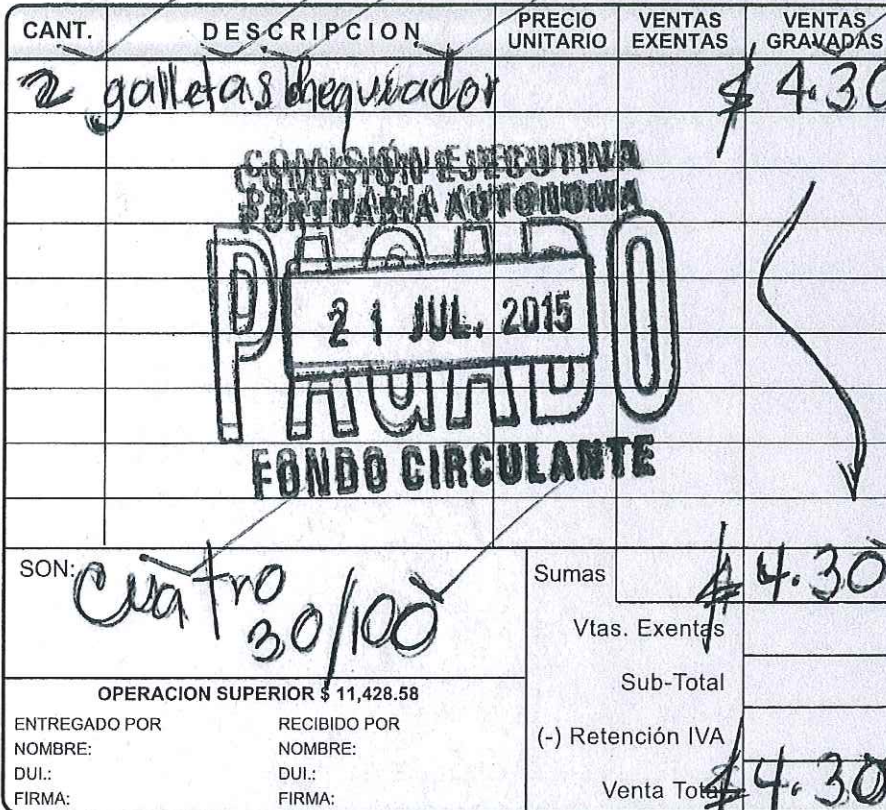 CANT. DESCRIPCION PRECIO UNITARIO VENTAS EXENTAS VENTAS GRAVADAS
2 galletas $ 4.30
COMISIÓN EJECUTIVA
PORTUARIA AUTONOMA
PAGADO
21 JUL. 2015
FONDO CIRCULANTE
SON: Cuatro 30/100
Sumas $ 4.30
Vtas. Exentas
Sub-Total
(-) Retención IVA
Venta Total $ 4.30
OPERACION SUPERIOR $ 11,428.58
ENTREGADO POR RECIBIDO POR
NOMBRE: NOMBRE:
DUI.: DUI.:
FIRMA: FIRMA: